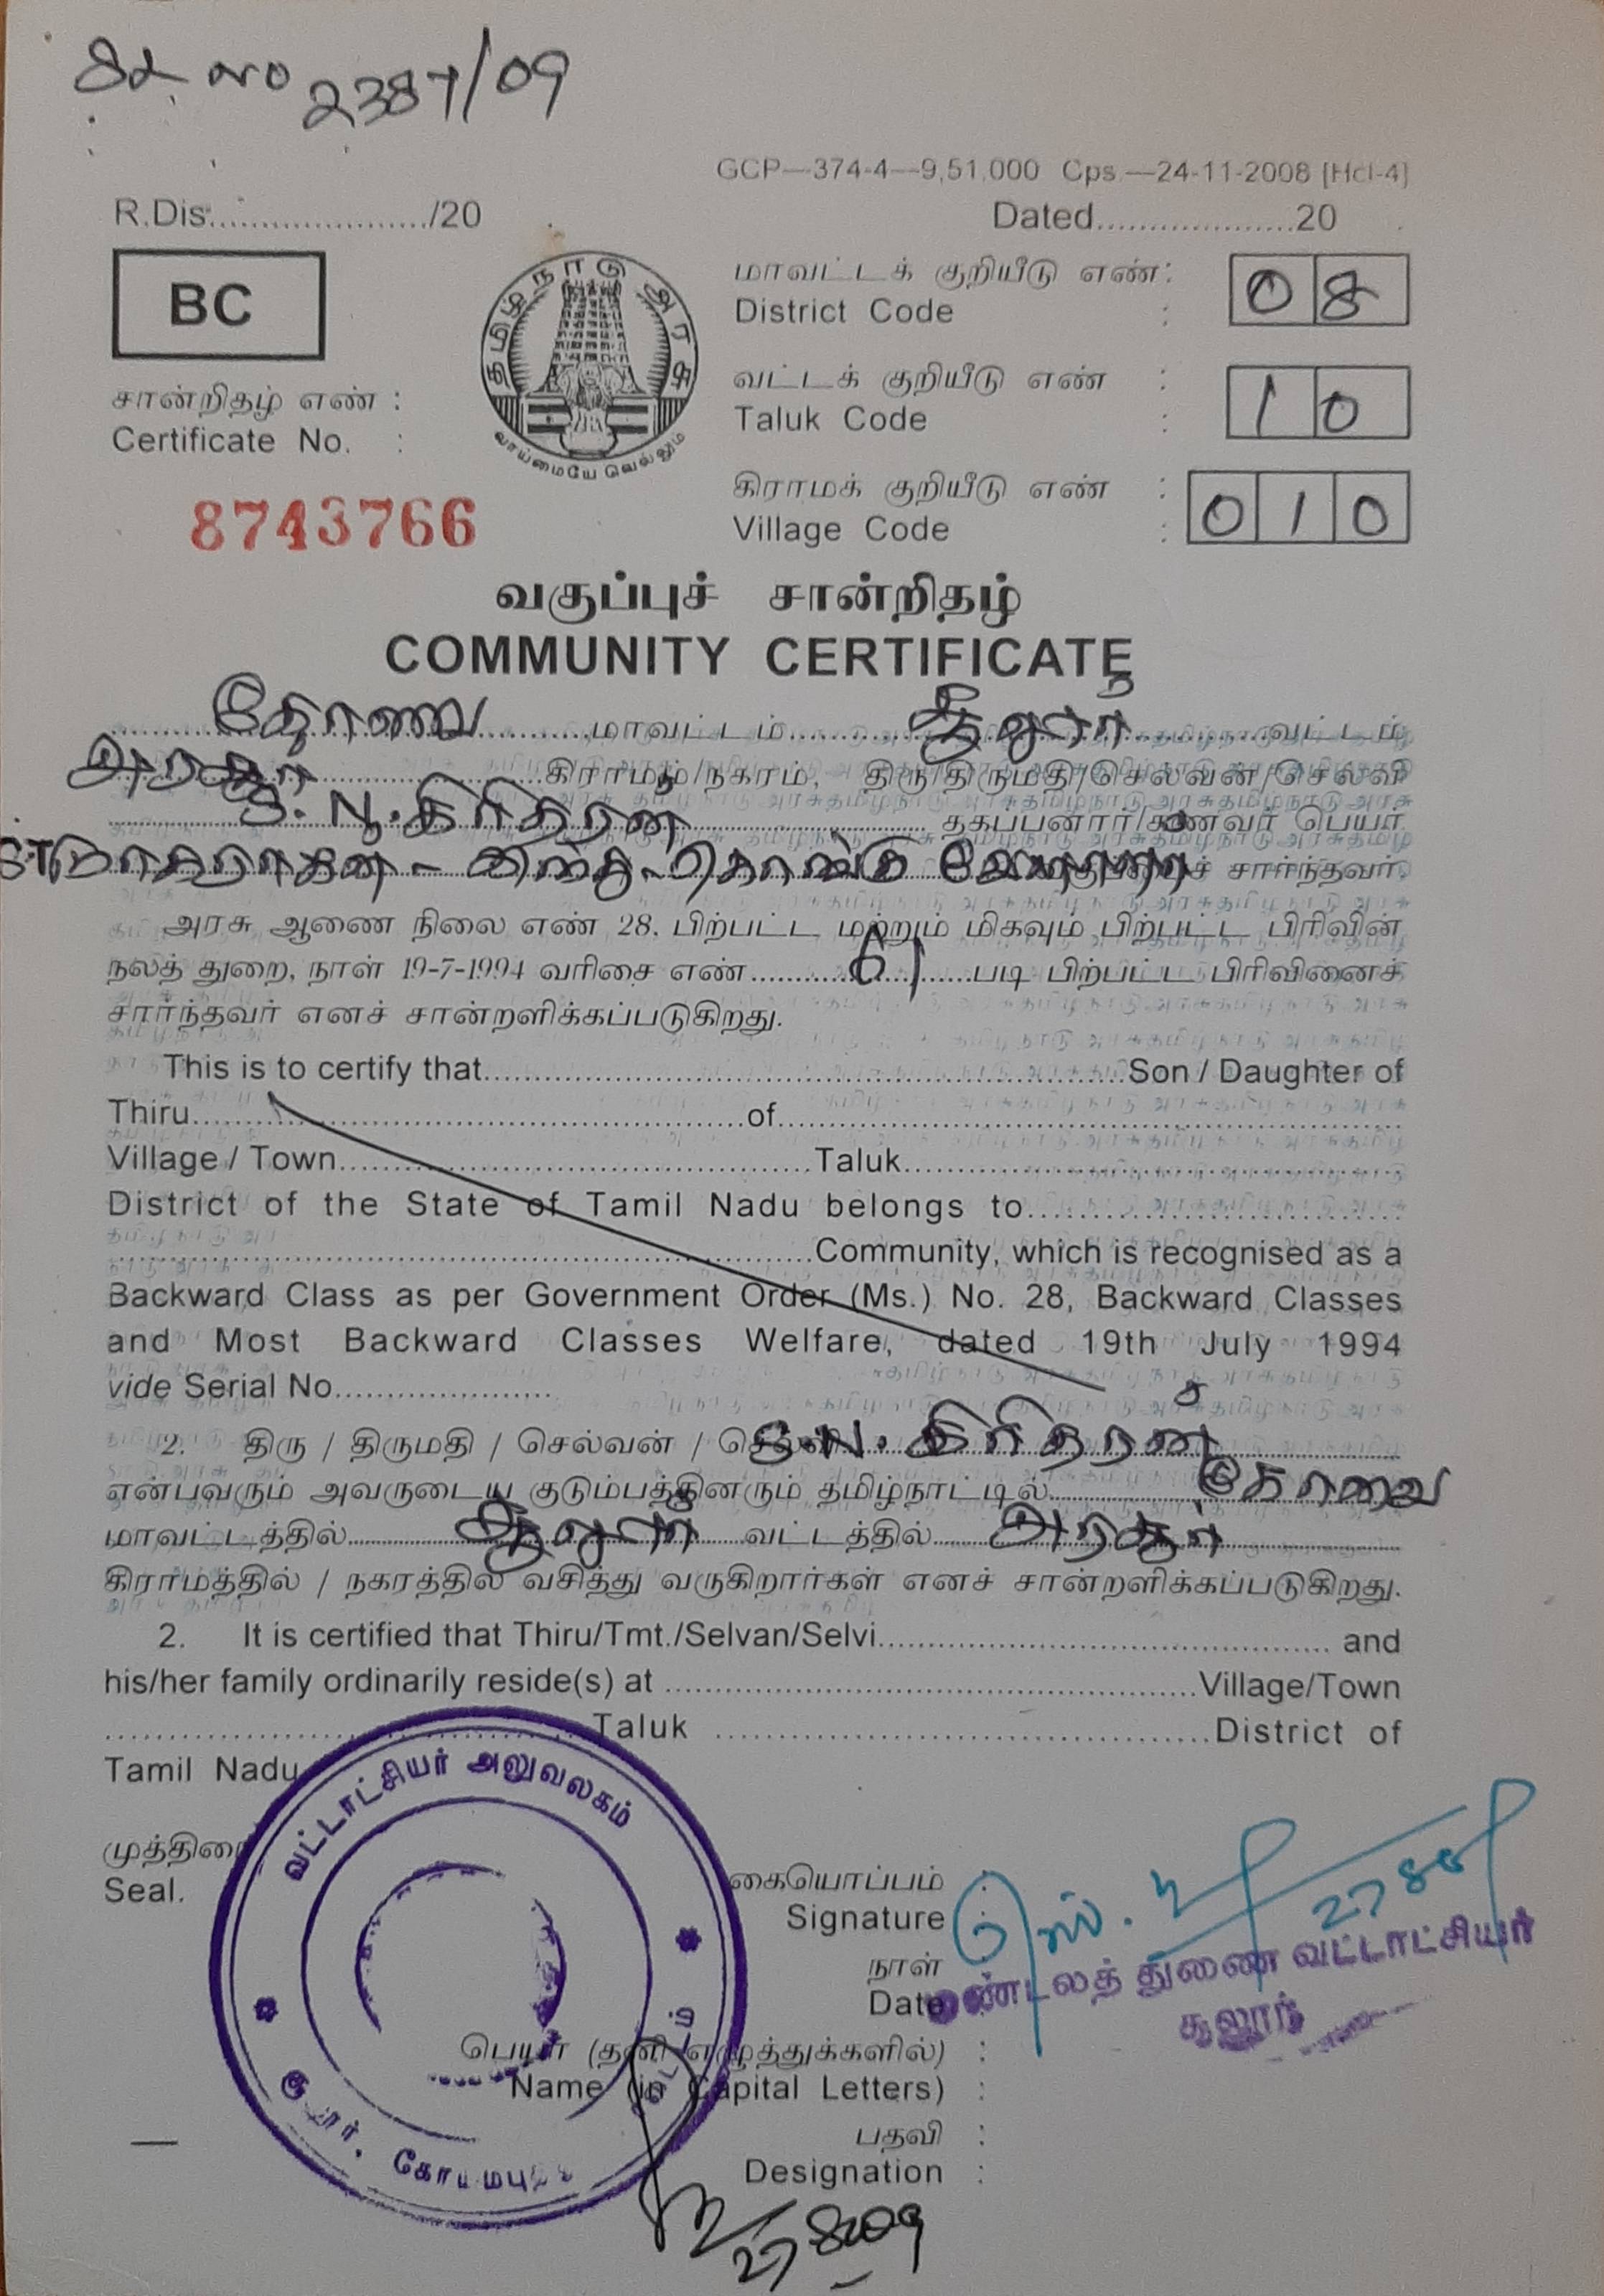 2387/09
GCP—374-4—9,51,000 Cps.—24-11-2008 [Hcl-4]
R.Dis....................../20 Dated....................20
BC
தமிழ்நாடு அரசு
வாய்மையே வெல்லும்
மாவட்டக் குறியீடு எண் :
District Code : 08
வட்டக் குறியீடு எண் :
Taluk Code : 10
கிராமக் குறியீடு எண் :
Village Code : 010
சான்றிதழ் எண் :
Certificate No. :
8743766
வகுப்புச் சான்றிதழ்
COMMUNITY CERTIFICATE
கோவை மாவட்டம் சூலூர் வட்டம்
அரசூர் கிராமம்/நகரம், திரு/திருமதி/செல்வன்/செல்வி
S. N. கிரிதரன் தகப்பனார்/கணவர் பெயர்
சார்ந்தவர்.
அரசு ஆணை நிலை எண் 28, பிற்பட்ட மற்றும் மிகவும் பிற்பட்ட பிரிவின்
நலத் துறை, நாள் 19-7-1994 வரிசை எண் 61 படி பிற்பட்ட பிரிவினைச்
சார்ந்தவர் எனச் சான்றளிக்கப்படுகிறது.
This is to certify that....................Son / Daughter of
Thiru....................of....................
Village / Town....................Taluk....................
District of the State of Tamil Nadu belongs to....................
....................Community, which is recognised as a
Backward Class as per Government Order (Ms.) No. 28, Backward Classes
and Most Backward Classes Welfare, dated 19th July 1994
vide Serial No....................
2. திரு / திருமதி / செல்வன் / செல்வி S.N. கிரிதரன்
என்பவரும் அவருடைய குடும்பத்தினரும் தமிழ்நாட்டில் கோவை
மாவட்டத்தில் சூலூர் வட்டத்தில் அரசூர்
கிராமத்தில் / நகரத்தில் வசித்து வருகிறார்கள் எனச் சான்றளிக்கப்படுகிறது.
2. It is certified that Thiru/Tmt./Selvan/Selvi.................... and
his/her family ordinarily reside(s) at ....................Village/Town
....................Taluk ....................District of
Tamil Nadu
முத்திரை
Seal.
வட்டாட்சியர் அலுவலகம்
சூலூர். கோயமபுத்
வட்டம்
கையொப்பம் :
Signature :
27 8
மண்டலத் துணை வட்டாட்சியர்
சூலூர்
நாள்
Date
பெயர் (தனி எழுத்துக்களில்) :
Name (in Capital Letters) :
பதவி :
Designation :
27 8 2009